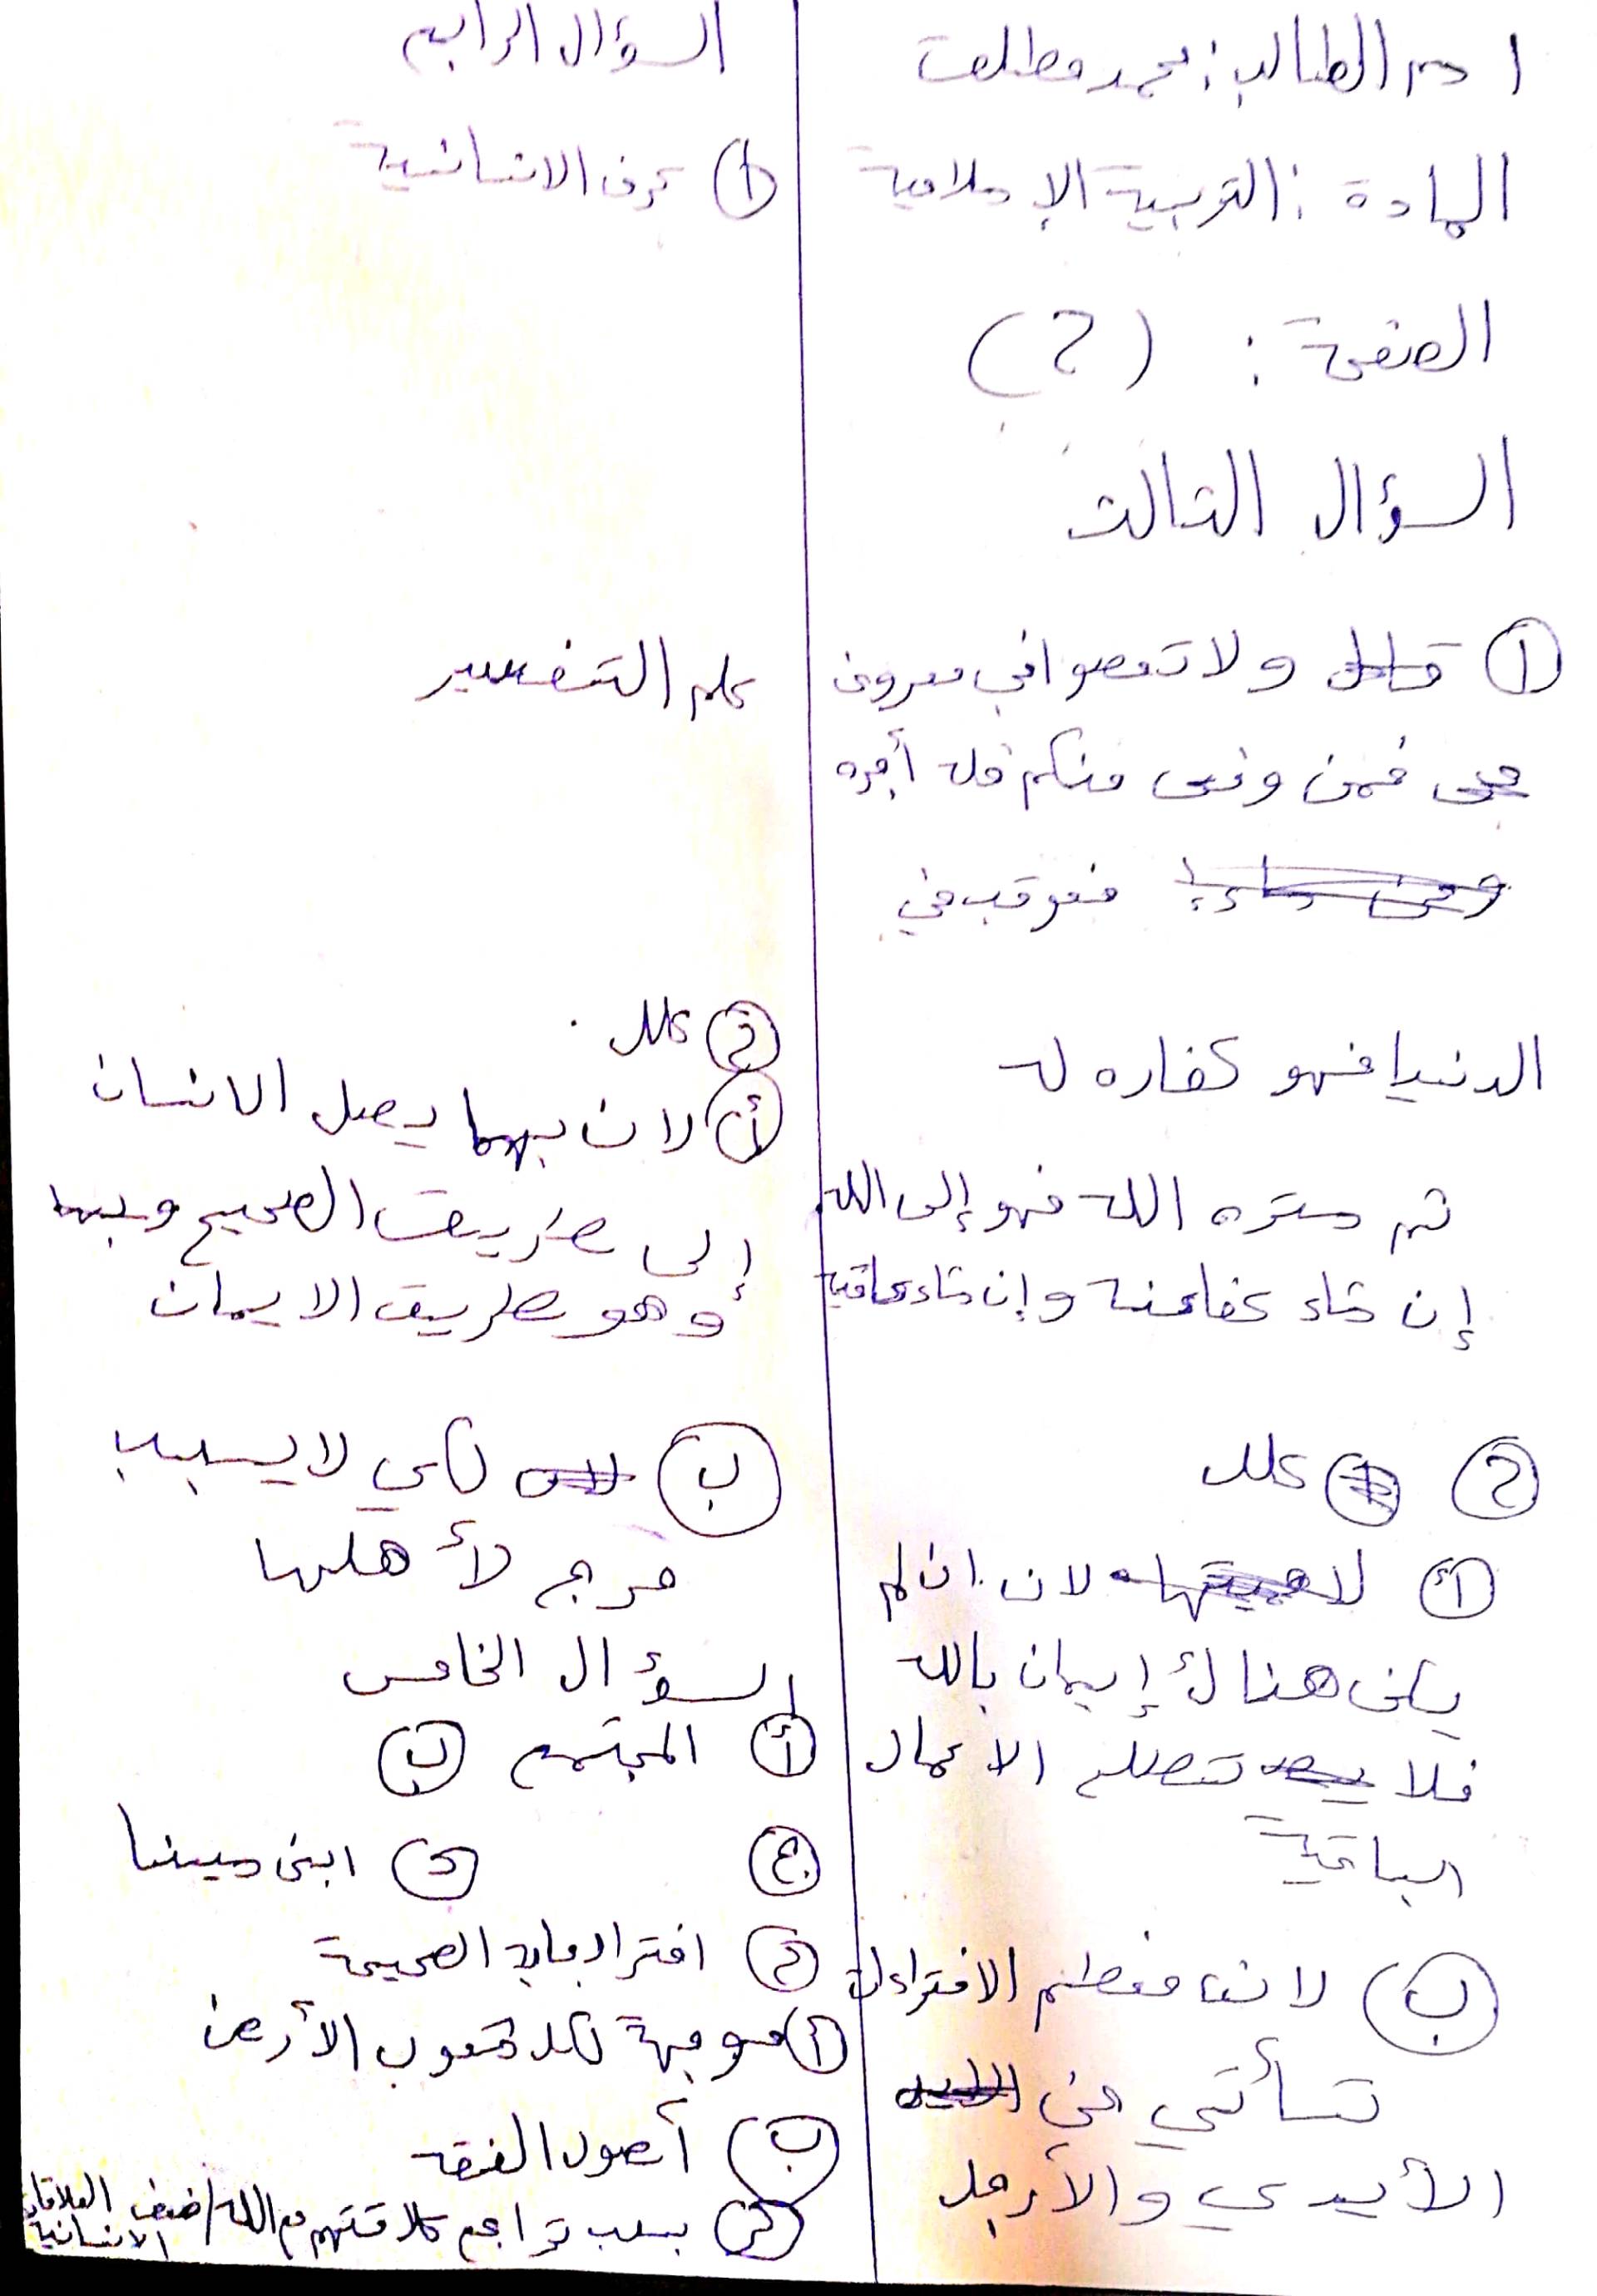 اسم الطالب: محمد مطلق
المادة: التربية الإسلامية
الصفحة: (2)
السؤال الثالث
① ولا تعصوا في معروف
فمن وفى منكم فله أجره
فعوقب في
الدنيا فهو كفاره له
ثم ستره الله فهو إلى الله
إن شاء عفا عنه وإن شاء عاقبه
② علل
أ لان ان لم
يكن هناك إيمان بالله
فلا تصلح الاعمال
الباقية
ب لان معظم الافتراءات
تأتي من
الأيدي والأرجل
السؤال الرابع
① عرف الانسانية
علم التفسير
② علل
أ لان بهما يصل الانسان
إلى طريق الصحيح
وهو طريق الايمان
ب لكي لا يسبب
حرج لأهلها
السؤال الخامس
أ المجتمع ب
ج د ابن سينا
② اختر الإجابة الصحيحة
أ موجهة لكل شعوب الأرض
ب أصول الفقه
بسبب تراجع علاقتهم مع الله / ضعف العلاقات الانسانية